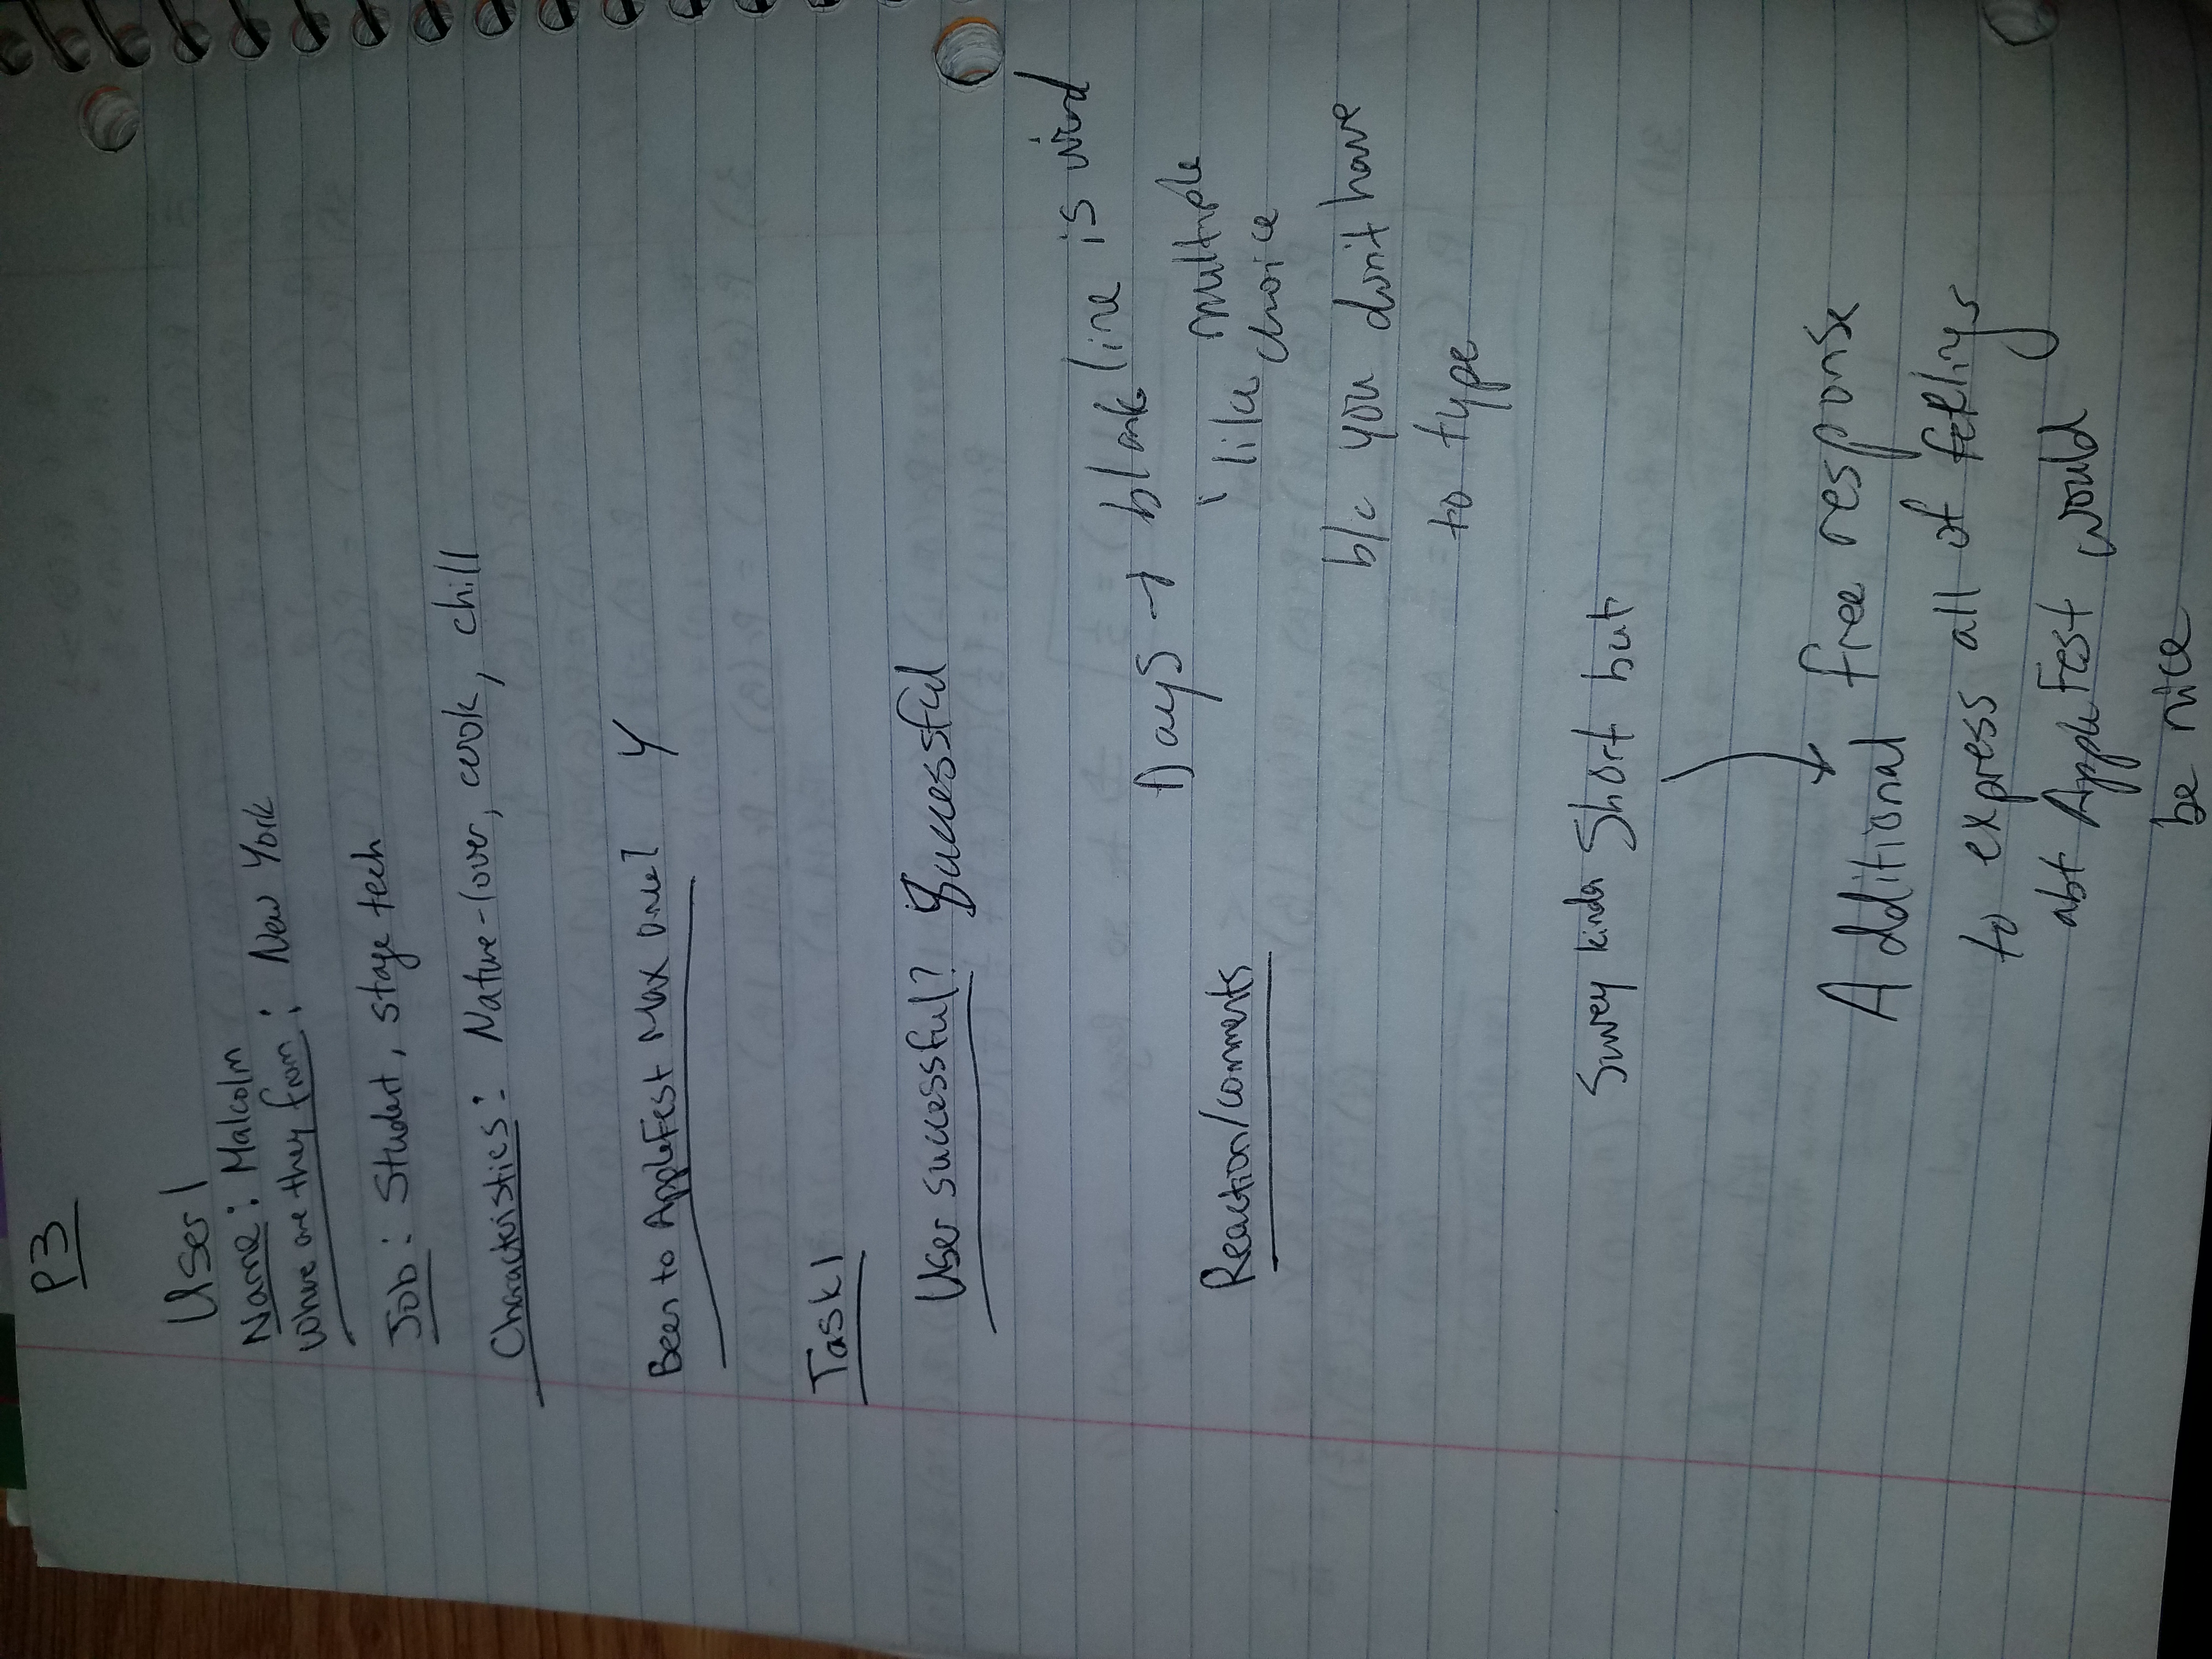 P3
User 1
Name: Malcolm
Where are they from: New York
Job: Student, stage tech
Characteristics: Nature-lover, cook, chill
Been to AppleFest Max Once? Y
Task 1
User successful? Successful
Days → blank line is weird
like multiple
choice
Reaction/comments
b/c you don't have
to type
Survey kinda short but
Additional free response
to express all of feelings
abt AppleFest would
be nice